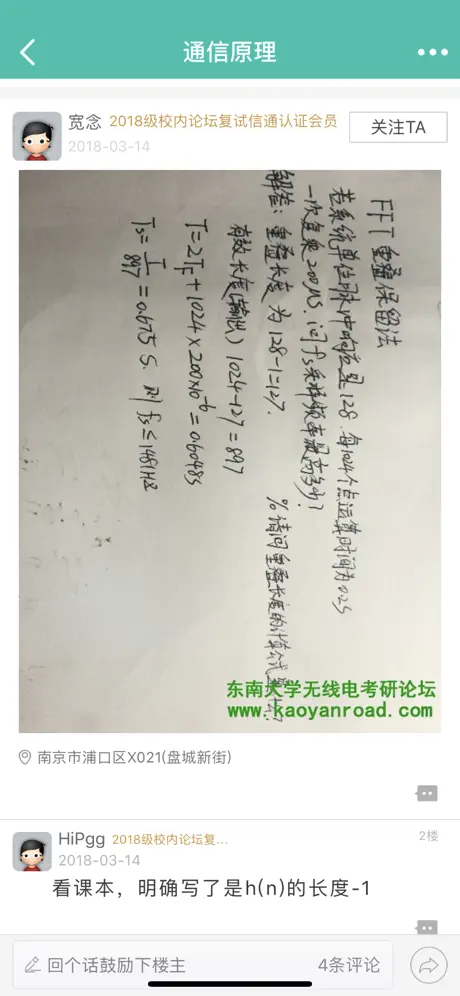 通信原理
宽念 2018级校内论坛复试信通认证会员
关注TA
2018-03-14
FFT重叠保留法
若系统单位脉冲响应是128.每1024个点运算时间为0.2s
一次复乘200μs.问fs采样频率最高多少?
解答:重叠长度为128-1=127. %请问重叠长度的计算公式是什么?
有效长度(输出)1024-127=897
T=2T_F+1024×200×10^-6=0.6048s
Ts=T/897=0.675 S. 则 fs≤1481Hz
东南大学无线电考研论坛
www.kaoyanroad.com
南京市浦口区X021(盘城新街)
HiPgg 2018级校内论坛复...
2楼
2018-03-14
看课本，明确写了是h(n)的长度-1
回个话鼓励下楼主
4条评论